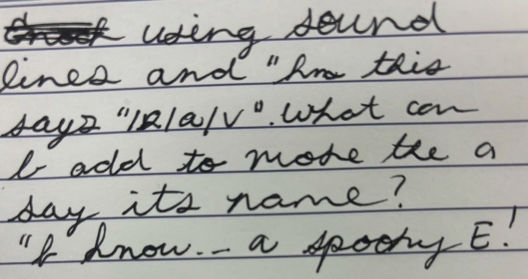 using sound
lines and "hm this
says "/R/a/V". What can
I add to make the a
say its name?
"I know... a spooky E!